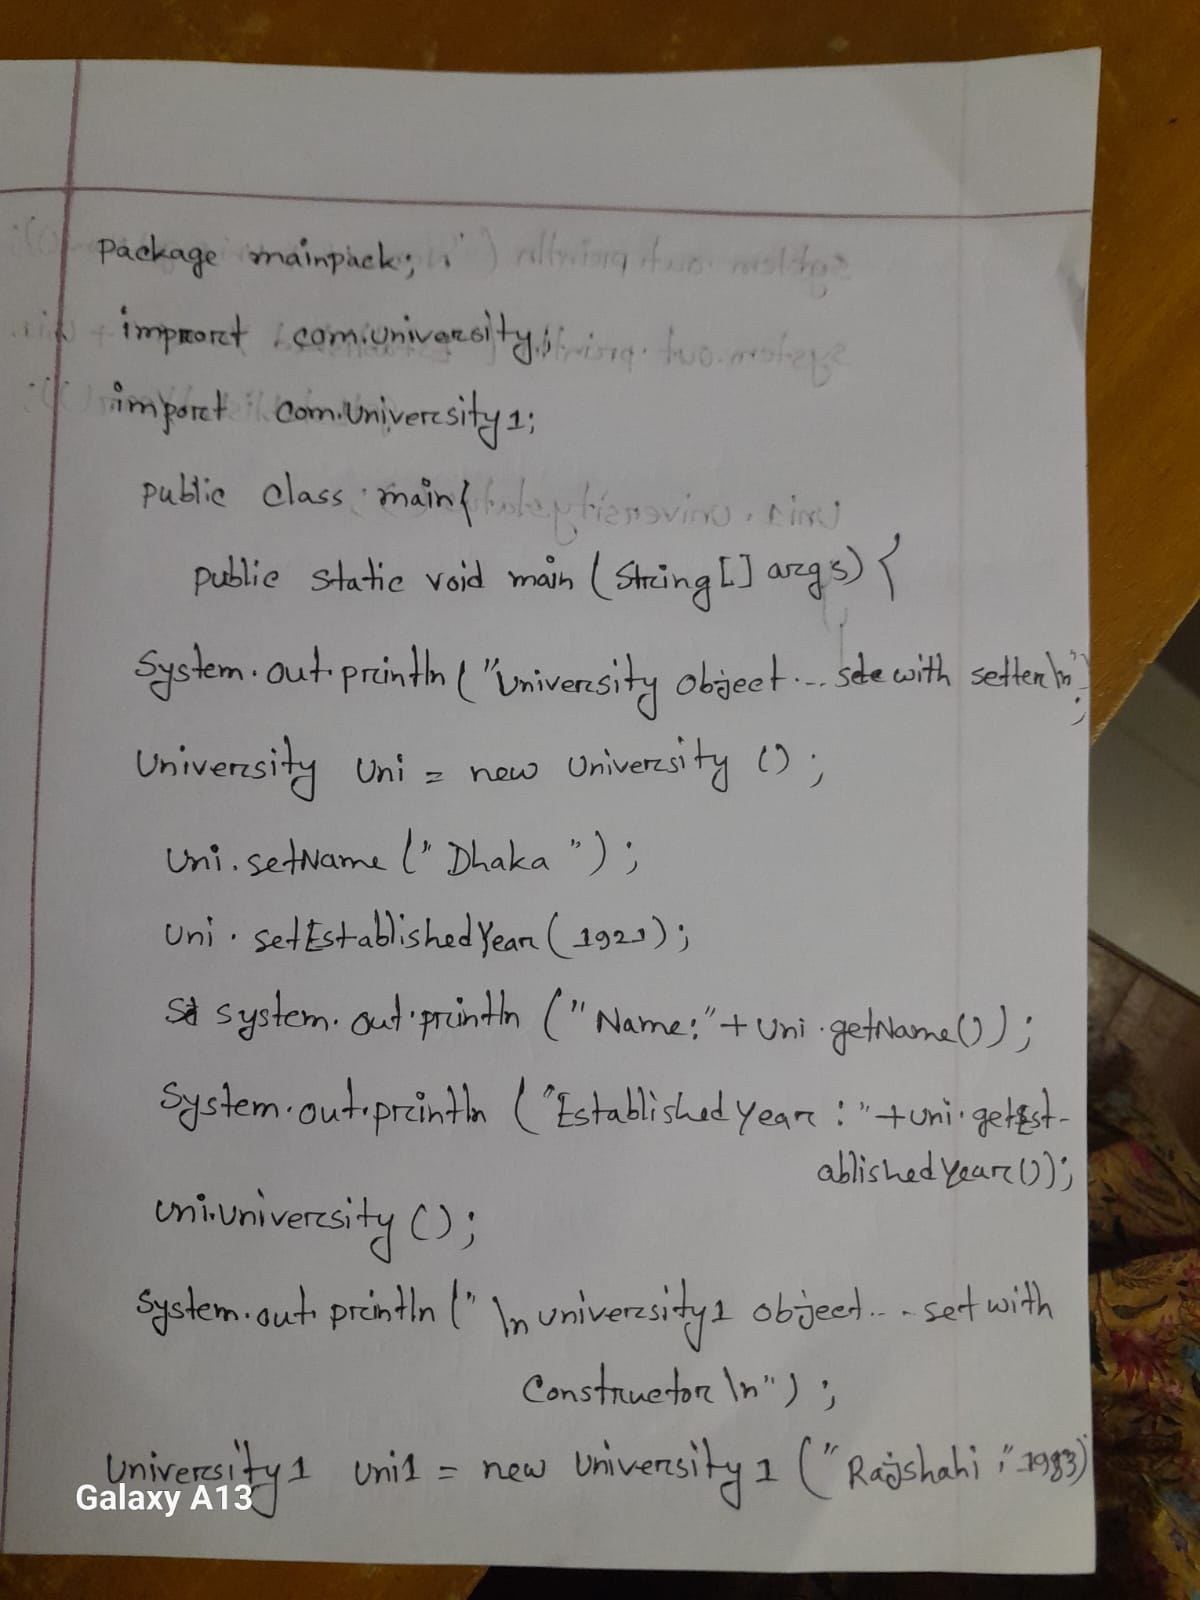 package mainpack;
import com.university;
import com.University1;
public class main{
public static void main (String [] args) {
System.out.println ("University object... with setter\n");
University Uni = new University ();
Uni.setName ("Dhaka");
Uni.setEstablishedYear (1921);
System.out.println ("Name:"+Uni.getName());
System.out.println ("Established Year:"+uni.getEst-
ablishedYear());
uni.university ();
System.out.println ("\n university1 object... set with
Constructor \n");
University1 uni1 = new University1 ("Rajshahi", 1983)
Galaxy A13